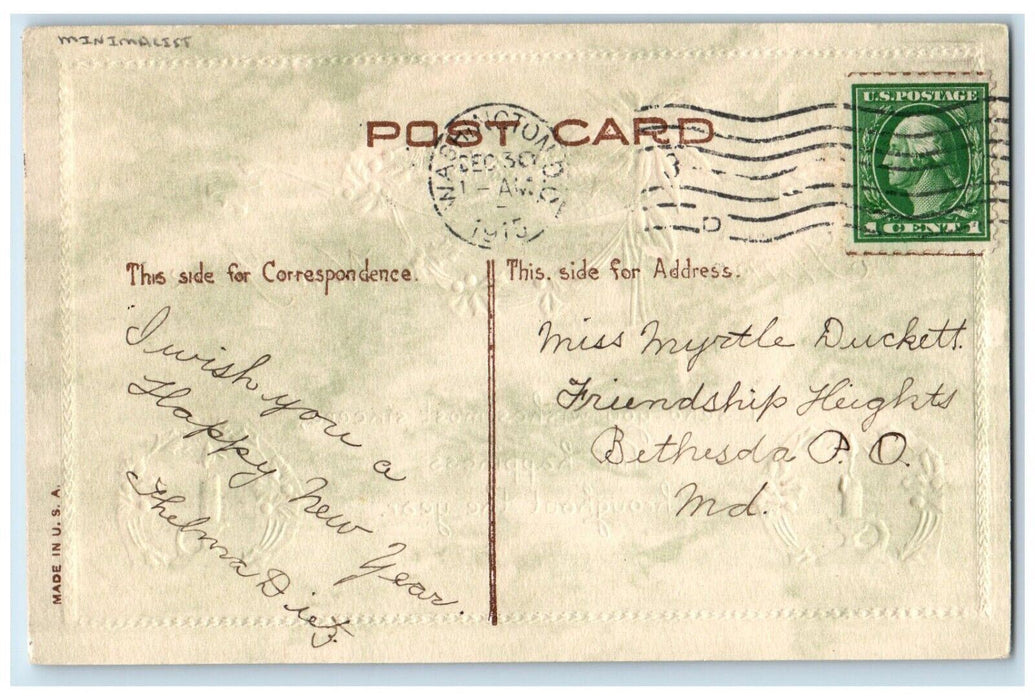 MINIMALIST
POST CARD
WASHINGTON, D.C.
DEC 30
1 - AM
1915
3
D
U.S. POSTAGE
1 CENT 1
This side for Correspondence.
This side for Address.
I wish you a
Happy New
Year.
Thelma Dietz.
Miss Myrtle Duckett.
Friendship Heights
Bethesda P. O.
Md.
MADE IN U. S. A.